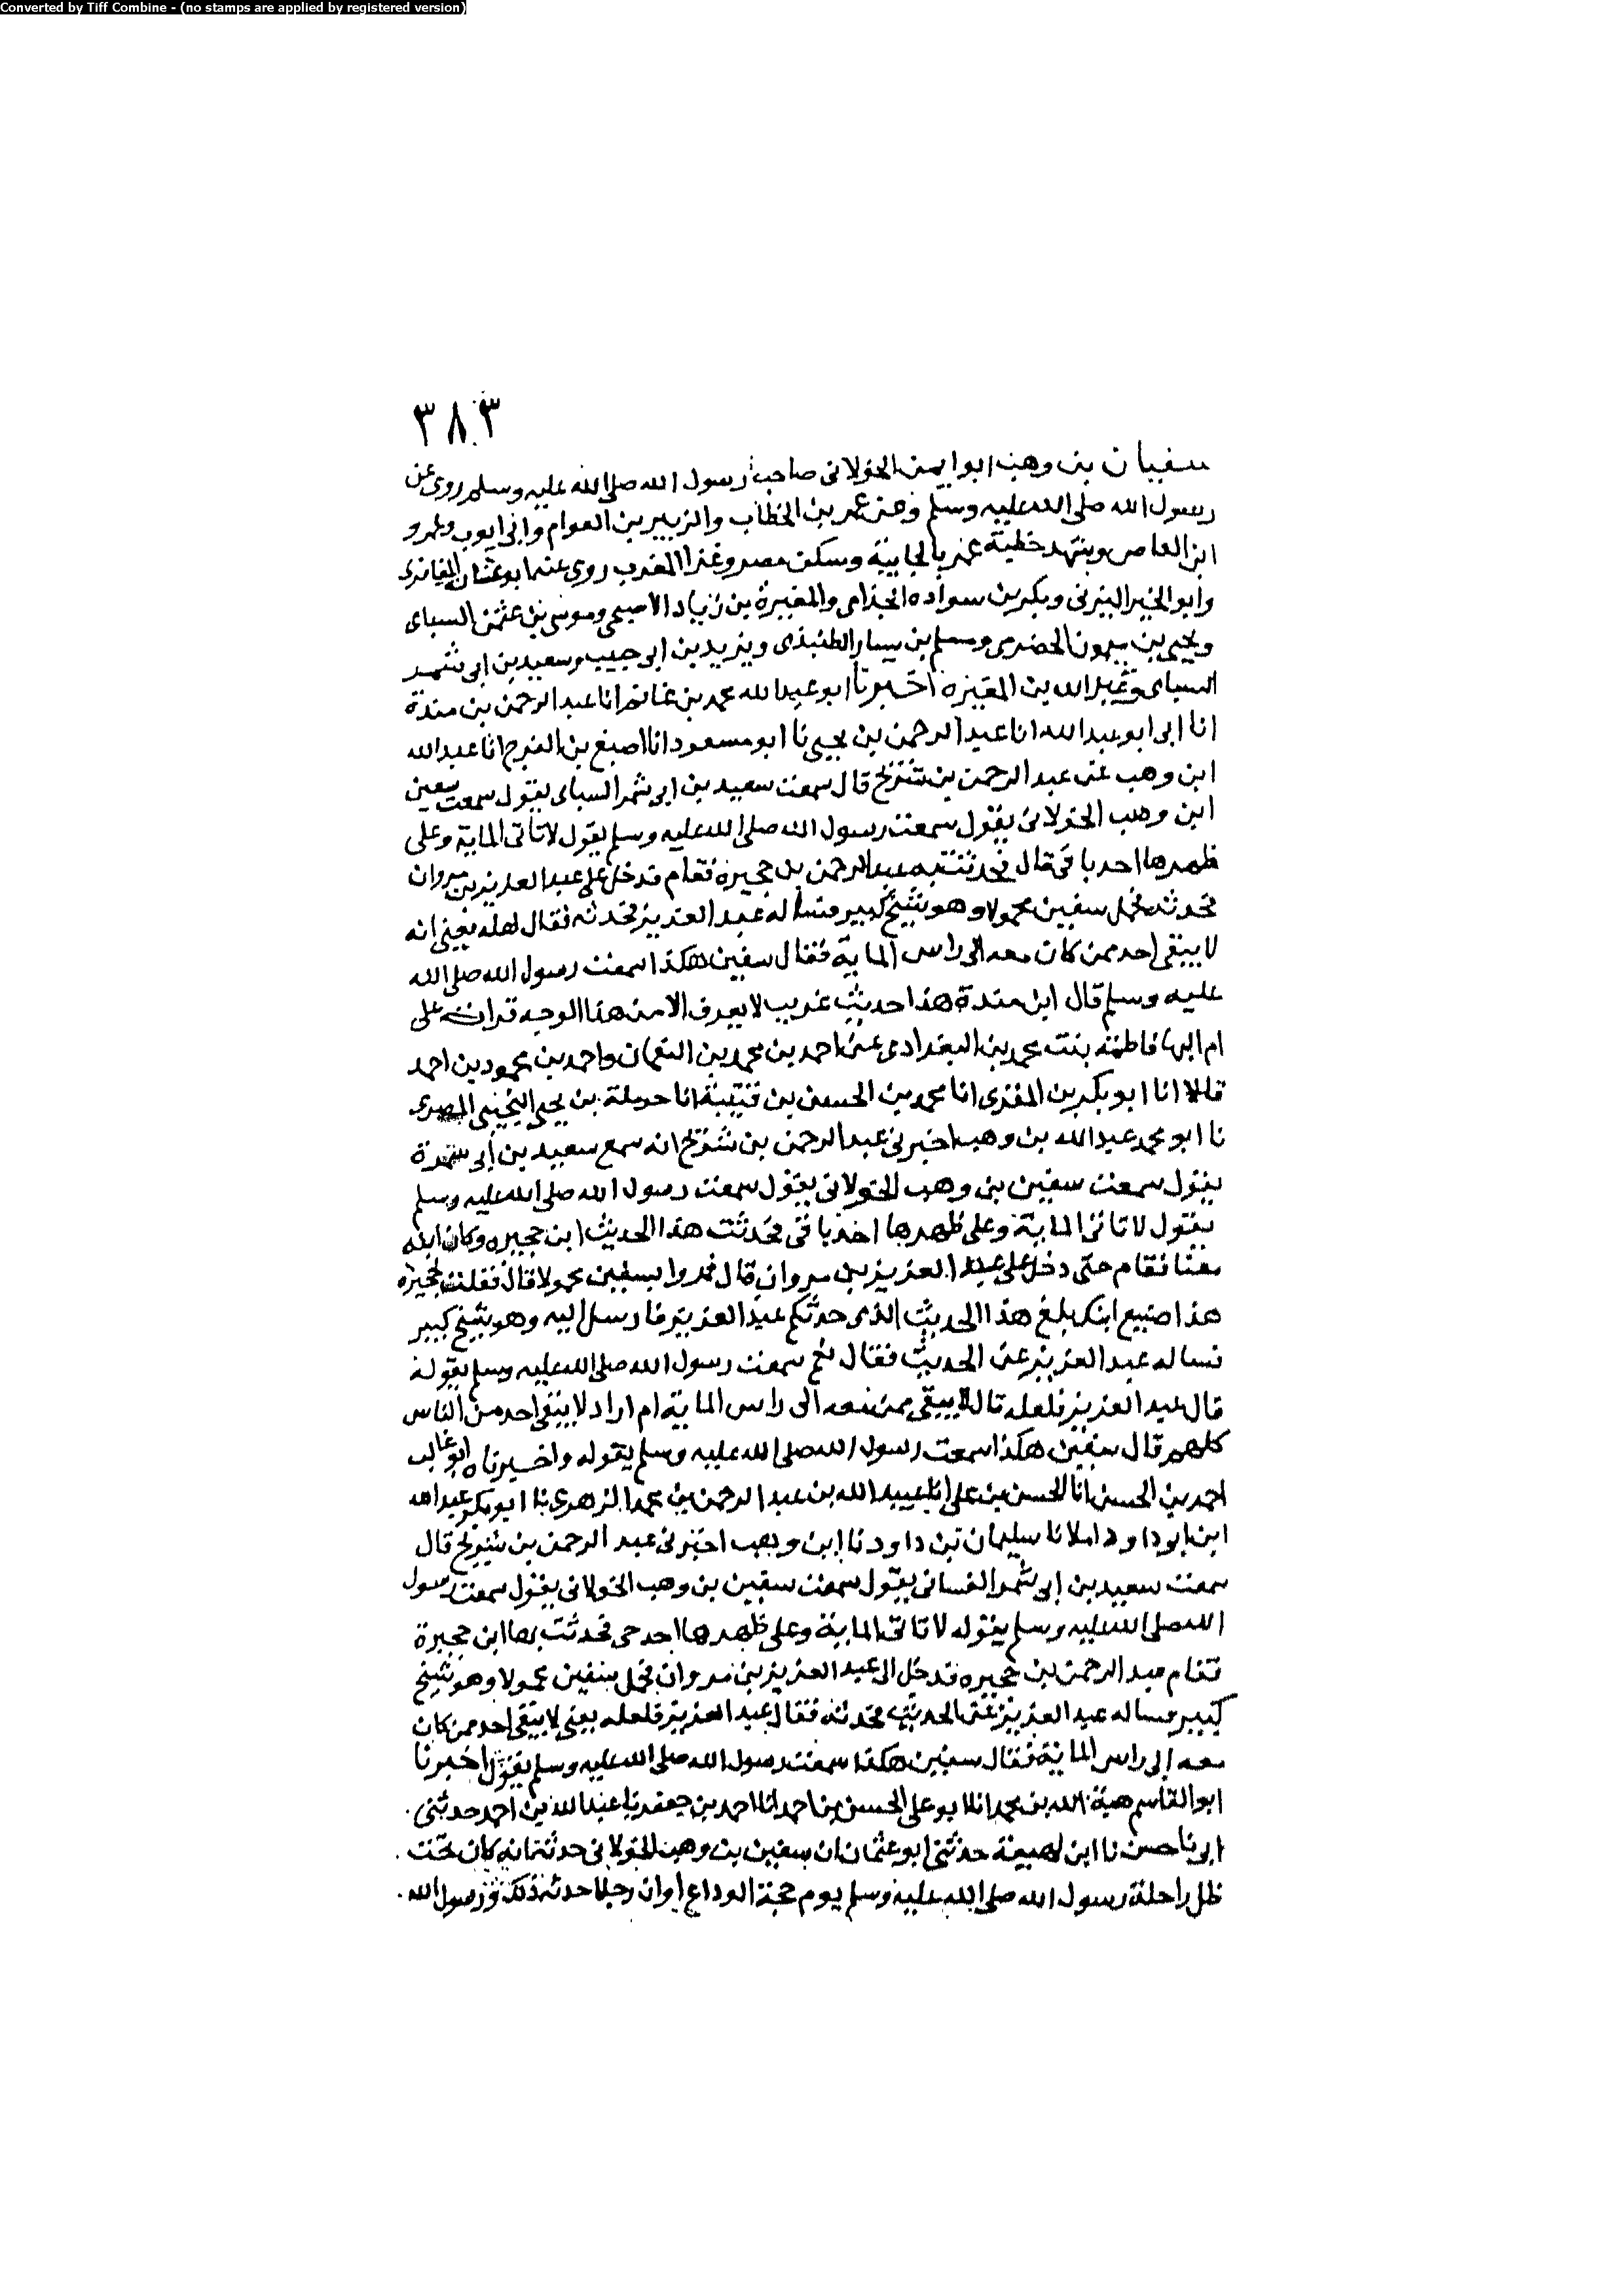 Converted by Tiff Combine - (no stamps are applied by registered version)
٣٨٣
سفيان بن وهب ابو ايمن الخولانى صاحب رسول الله صلى الله عليه وسلم روى عن
رسول الله صلى الله عليه وسلم وعن عمر بن الخطاب والزبير بن العوام وابى ايوب وعمرو
ابن العاص وشهد خطبة عمر بالجابية وسكن مصر وغزا المغرب روى عنه ابو عشانه المعافرى
وابو الخير اليزنى وبكر بن سواده الجذامى والمغيرة بن زياد الاصبحى وموسى بن عثمن السباى
ويحيى بن ميمون الحضرمى ومسلم بن يسار الطنبذى ويزيد بن ابى حبيب وسعيد بن ابى شمر
السباى وعبد الله بن المغيرة اخبرنا ابو عبد الله محمد بن غانم انا عبد الرحمن بن مندة
انا ابى ابو عبد الله انا عبد الرحمن بن يحيى نا ابو مسعود انا اصبغ بن الفرج انا عبد الله
ابن وهب عن عبد الرحمن بن شريح قال سمعت سعيد بن ابى شمر السباى يقول سمعت سفين
ابن وهب الخولانى يقول سمعت رسول الله صلى الله عليه وسلم يقول لا تاتى الماية وعلى
ظهرها احد باقى قال فحدثت به عبد الرحمن بن حجيرة فقام فدخل على عبد العزيز بن مروان
فحدثه فحمل سفين محمولا وهو شيخ كبير فساله عبد العزيز فحدثه فقال لعله يعنى انه
لا يبقى احد ممن كان معه الى راس الماية فقال سفين هكذا سمعت رسول الله صلى الله
عليه وسلم قال ابن مندة هذا حديث غريب لا يعرف الا من هذا الوجه قرات على
ام البها فاطمة بنت محمد بن البغدادى عن احمد بن محمد بن النعمان واحمد بن محمود بن احمد
قالا انا ابو بكر بن المقرى انا محمد بن الحسن بن قتيبة انا حرملة بن يحيى التجيبى المصرى
نا ابو محمد عبد الله بن وهب اخبرنى عبد الرحمن بن شريح انه سمع سعيد بن ابى شمرة
يقول سمعت سفين بن وهب الخولانى يقول سمعت رسول الله صلى الله عليه وسلم
يقول لا تاتى الماية وعلى ظهرها احد باقى فحدثت هذا الحديث ابن حجيره وكان ابنه
معنا فقام حتى دخل على عبد العزيز بن مروان قال فمروا بسفين محمولا قال فقلت لحجيرة
هذا صنيع ابنك بلغ هذا الحديث الذى حدثكم عبد العزيز فارسل اليه وهو شيخ كبير
فساله عبد العزيز عن الحديث فقال نعم سمعت رسول الله صلى الله عليه وسلم يقوله
قال عبد العزيز فلعله قال لا يبقى ممن معه الى راس الماية ام اراد لا يبقى احد من الناس
كلهم قال سفين هكذا سمعت رسول الله صلى الله عليه وسلم يقوله واخبرناه ابو غالب
احمد بن الحسن انا الحسن بن على انا عبيد الله بن عبد الرحمن بن محمد الزهرى نا ابو بكر عبد الله
ابن ابو داود املا نا سليمان بن داود نا ابن وهب اخبرنى عبد الرحمن بن شريح قال
سمعت سعيد بن ابى شمر الغسانى يقول سمعت سفين بن وهب الخولانى يقول سمعت رسول
الله صلى الله عليه وسلم يقوله لا تاتى الماية وعلى ظهرها احد حى فحدثت بها ابن حجيرة
فقام عبد الرحمن بن حجيره فدخل الى عبد العزيز بن مروان فحمل سفين محمولا وهو شيخ
كبير فساله عبد العزيز عن الحديث فحدثه فقال عبد العزيز فلعله يعنى لا يبقى احد ممن كان
معه الى راس الماية فقال سفين هكذا سمعت رسول الله صلى الله عليه وسلم يقول اخبرنا
ابو القاسم هبة الله بن محمد انا ابو على الحسن بن احمد انا احمد بن جعفر نا عبد الله بن احمد حدثنى
ابى نا حسن نا ابن لهيعة حدثنى ابو عشانه ان سفين بن وهب الخولانى حدثه انه كان تحت
ظل راحلة رسول الله صلى الله عليه وسلم يوم حجة الوداع او ان رجلا حدثه ذلك ورسول الله